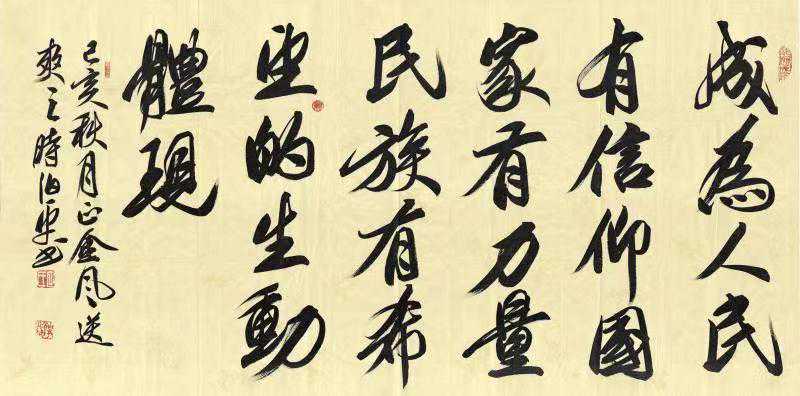 成為人民
有信仰國
家有力量
民族有希
望的生動
體現
己亥秋月正金風送
爽之時伯平書